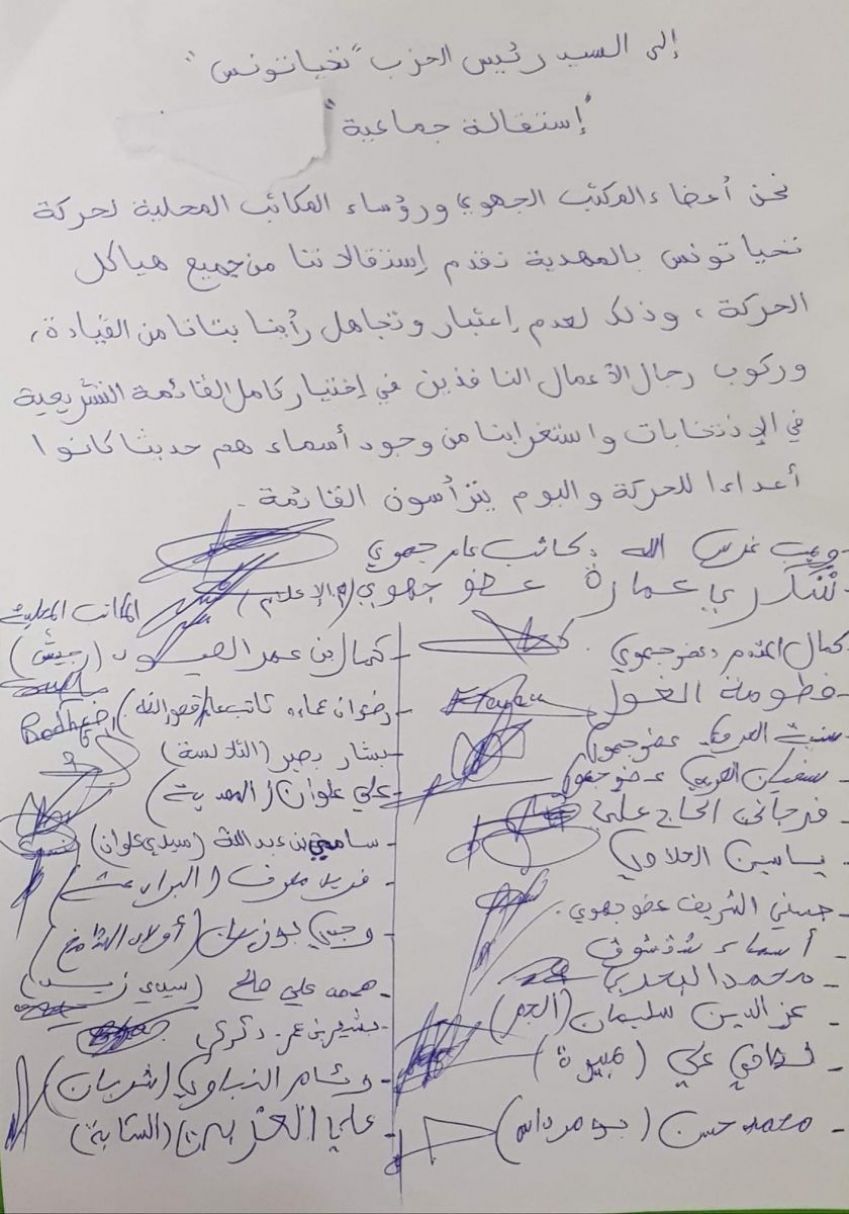 إلى السيد رئيس الحزب "تحيا تونس"
"إستقالة جماعية"
نحن أعضاء المكتب الجهوي ورؤساء المكاتب المحلية لحركة
تحيا تونس بالمهدية نقدم إستقالاتنا من جميع هياكل
الحركة، وذلك لعدم إعتبار وتجاهل رأينا بتاتا من القيادة،
وركوب رجال الأعمال النافذين في إختيار كامل القائمة التشريعية
في الإنتخابات واستغرابنا من وجود أسماء هم حديثا كانوا
أعداءا للحركة واليوم يترأسون القائمة.
غرس الله: كاتب عام جهوي
- شكري عمارة عضو جهوي (الإعلام)
المكاتب المحلية
كمال عضو جهوي
- فطومة الغول
عضو جهوي
- سفيان العربي عضو جهوي
- فرجاني الحاج علي
- ياسين
- حسني الشريف عضو جهوي
- أسماء شوشو
- محمد البحري
- عز الدين سليمان (الجم)
- علي (هبيرة)
- محمد حسن (بومرداس)
- كمال بن عمر (رجيش)
- رضوان كاتب عام (قصور الساف)
Redhouane
- بشار (التلالسة)
- علي علوان (المهدية)
- سامي بن عبد الله (سيدي علوان)
- فريد (البرادعة)
- وجدي (أولاد الشامخ)
- محمد علي صالح (سيدي زيد)
- بشير بن عمر
- وئام (شربان)
- علي